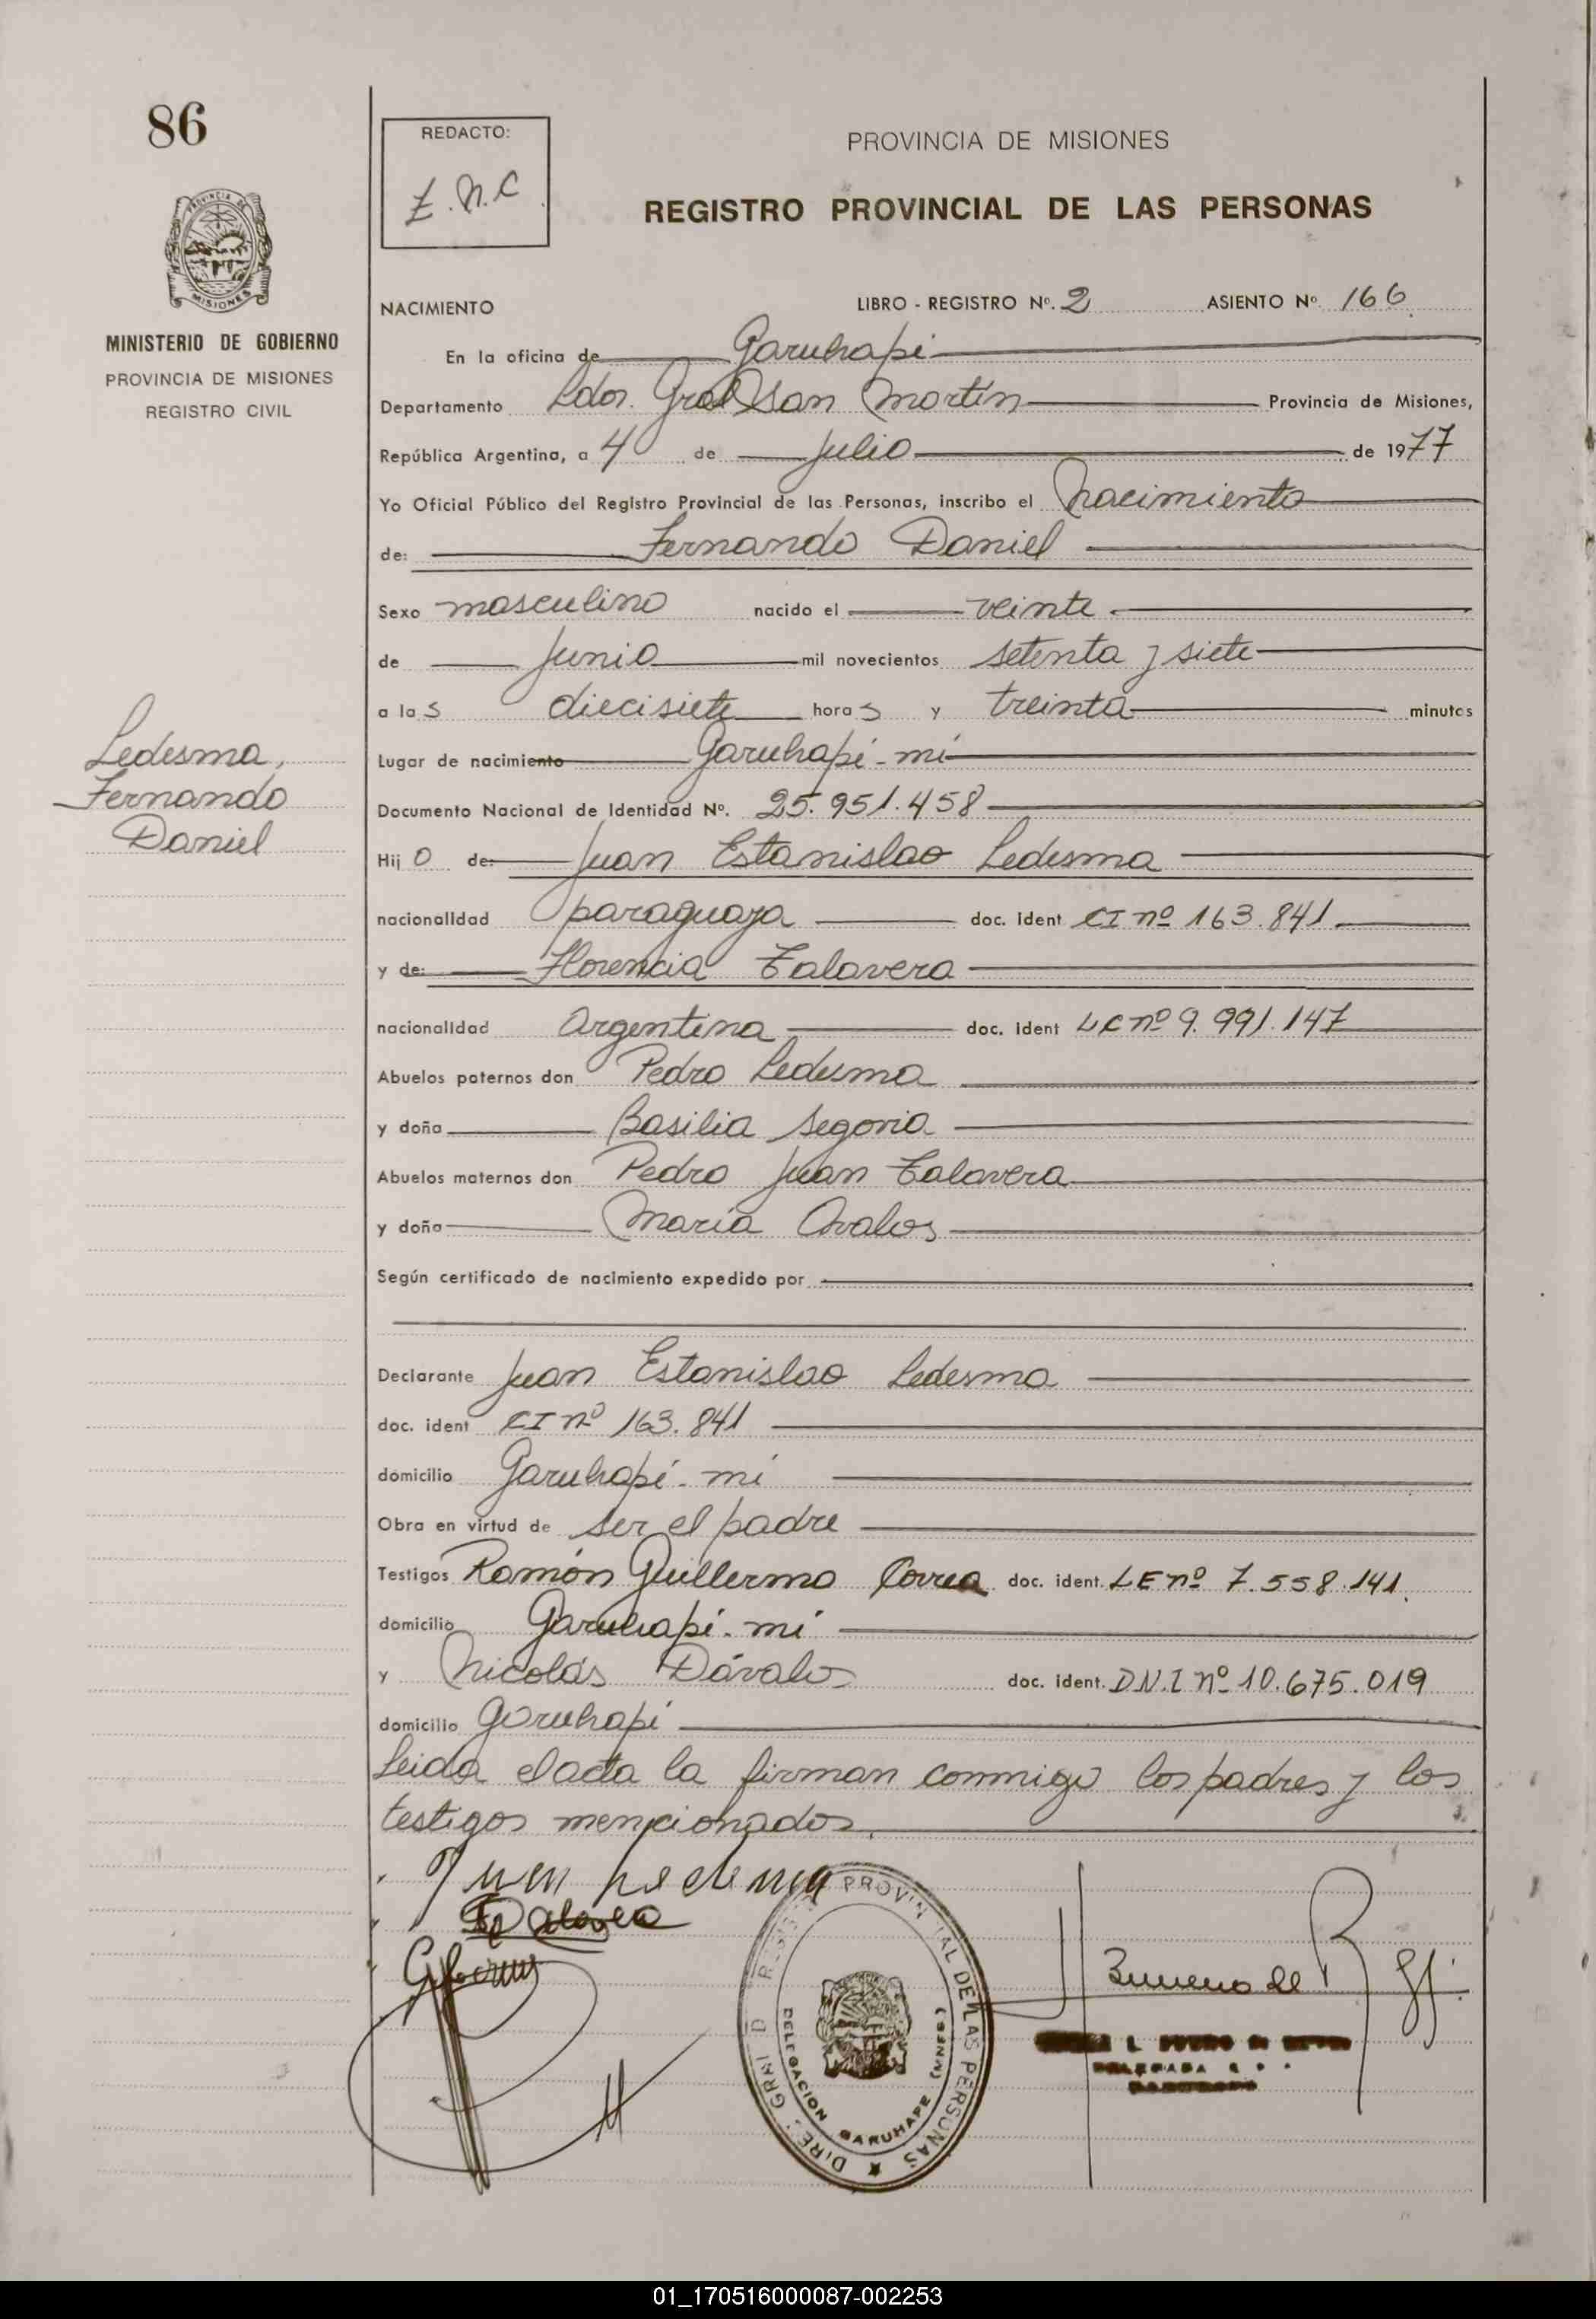 86
REDACTO:
E.N.C
PROVINCIA DE MISIONES
REGISTRO PROVINCIAL DE LAS PERSONAS
PROVINCIA DE
MISIONES
MINISTERIO DE GOBIERNO
PROVINCIA DE MISIONES
REGISTRO CIVIL
NACIMIENTO LIBRO - REGISTRO Nº. 2 ASIENTO Nº 166
En la oficina de Garuhapi
Departamento Ldor. Gral San Martín Provincia de Misiones,
República Argentina, a 4 de Julio de 1977
Yo Oficial Público del Registro Provincial de las Personas, inscribo el Nacimiento
de: Fernando Daniel
Sexo masculino nacido el veinte
de Junio mil novecientos setenta y siete
a las diecisiete horas y treinta minutos
Lugar de nacimiento Garuhapí-mí
Ledesma,
Fernando
Daniel
Documento Nacional de Identidad Nº. 25.951.458
Hijo de: Juan Estanislao Ledesma
nacionalidad paraguaya doc. ident CI nº 163.841
y de: Florencia Talavera
nacionalidad Argentina doc. ident LC nº 9.991.147
Abuelos paternos don Pedro Ledesma
y doña Basilia Segovia
Abuelos maternos don Pedro Juan Talavera
y doña María Avalos
Según certificado de nacimiento expedido por
Declarante Juan Estanislao Ledesma
doc. ident CI nº 163.841
domicilio Garuhapí-mí
Obra en virtud de ser el padre
Testigos Ramón Guillermo Correa doc. ident. LE nº 7.558.141.
domicilio Garuhapí-mí
y Nicolás Dávalos doc. ident. D.N.I nº 10.675.019
domicilio Garuhapí
Leida el acta la firman conmigo los padres y los
testigos mencionados.
Juan Ledesma
PROVINCIAL DE LAS PERSONAS
DELEGACION GARUHAPE (MNES)
01_170516000087-002253